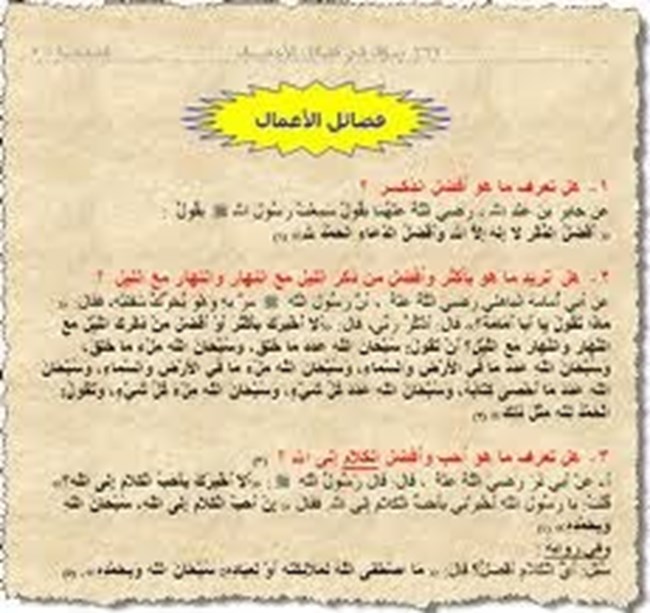 فضائل الأعمال
١- هل تعرف ما هو أفضل الذكر ؟
عن جابر بن عبد الله ، رضي اللهُ عنهُما يقولُ سمعتُ رسُولَ اللهِ ﷺ يقولُ :
« أفضلُ الذكرِ لا إله إلاّ الله وأفضلُ الدّعاءِ الحمْدُ لله» (١)
٢- هل تريد ما هو بأكثر وأفضل من ذكر الليل مع النهار والنهار مع الليل ؟
عن أبي أمامة الباهلي رضي اللهُ عنهُ ، أنّ رسُولَ الله ﷺ مرّ به وهو يُحرّكُ شفتيه، فقال: «
ماذا تقُول يا أبا أمامة؟». قال: أذكُرُ ربّي، قال: «ألا أخبرُك بأكثر أو أفضل من ذكرك الليْل مع
النّهار والنهار مع الليْل؟ أن تقول: سبْحان الله عدد ما خلق، وسبْحان الله ملْء ما خلق،
وسبْحان الله عدد ما في الأرْض والسّماء، وسبْحان الله ملْء ما في الأرْض والسّماء، وسبْحان
الله عدد ما أحْصى كتابهُ، وسبْحان الله عدد كُلّ شيْءٍ، وسبْحان الله ملْء كُلّ شيْءٍ، وتقُولُ:
الحمْدُ لله مثْل ذلك» (٢)
٣- هل تعرف ما هو أحب وأفضل الكلام إلى الله ؟ (٣)
أ- عن أبي ذر رضي اللهُ عنهُ ، قال: قال رسُولُ الله ﷺ : «ألا أخْبرُك بأحبّ الكلام إلى الله؟»
قُلتُ: يا رسُول الله أخْبرْني بأحبّ الكلام إلى الله. فقال « إنّ أحبّ الكلام إلى الله، سبْحان الله
وبحمْده»
وفي رواية :
سُئل: أيّ الكلام أفضلُ؟ قال: « ما اصْطفى الله لملائكته أوْ لعباده: سبْحان الله وبحمْده».